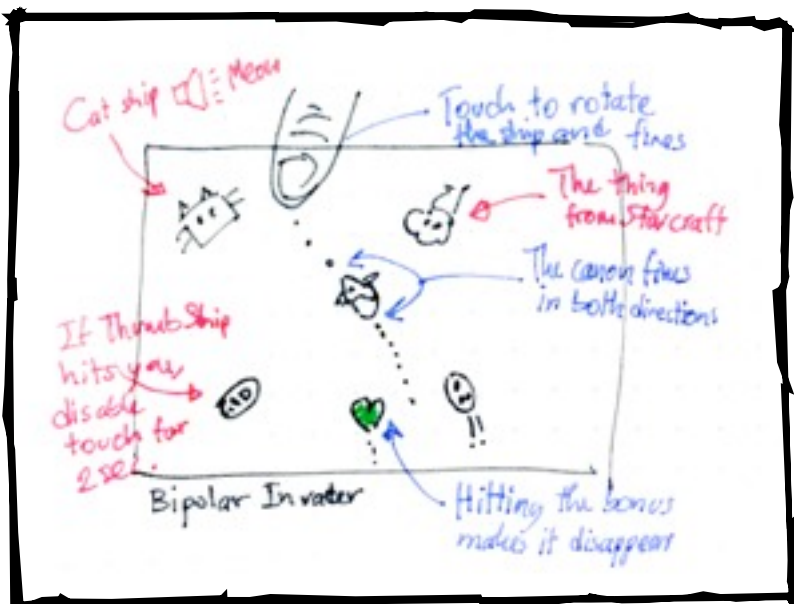 Cat ship Meow
Touch to rotate
the ship and fires
The thing
from Starcraft
The canon fires
in both directions
If Thumb Ship
hits you
disable
touch for
2 sec.
Bipolar Invater
Hitting the bonus
makes it disappear